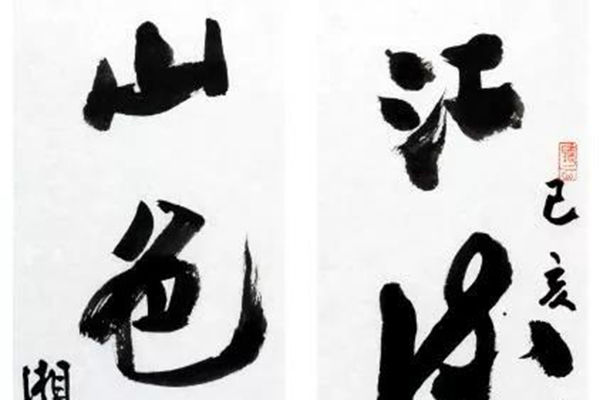 己亥
江流
山色
湘